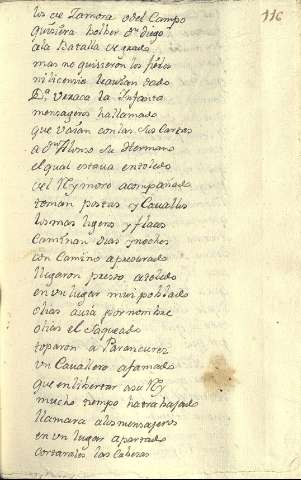 116
los de Zamora o del Campo
quisiera bolber Dn diego
a la Batalla de grado
mas no quisieron los fieles
ni licencia le avian dado
Da Vrraca la Infanta
mensageros ha llamado
que vaian con las sus Cartas
a Dn Alonso su Hermano
el qual estava en toledo
del Rey moro acompañado
toman postas y Cavallos
los mas ligeros y flacos
Caminan dias y noches
con Camino apresurado
llegaron presto a toledo
en vn lugar mui poblado
olias avia por nombre
olias el Saqueado
toparon a Peranzurez
vn Cavallero afamado
que en libertar a su Rey
mucho tiempo ha trabajado
llamara a los mensageros
en vn lugar apartado
cortaroles las Cabezas